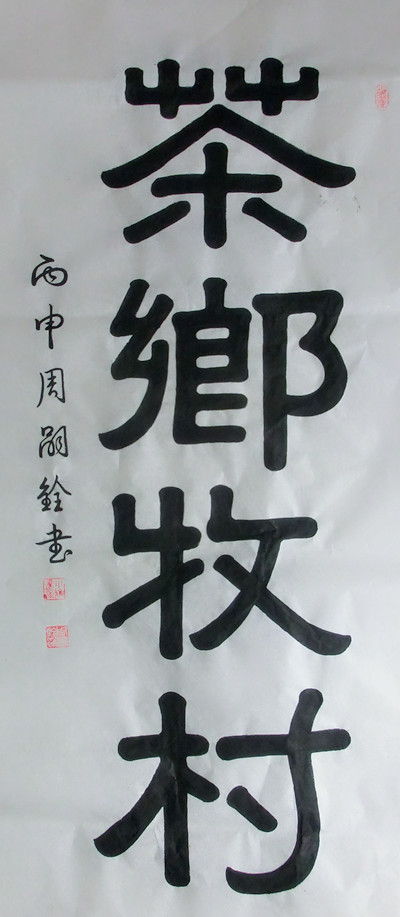 茶鄉牧村
丙申周嗣銓书